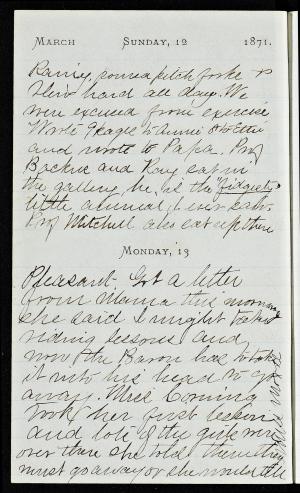 MARCH SUNDAY, 12 1871.
Rainy, poured pitch forks &
blew hard all day. We
were excused from exercise
Wrote 9 pages to Annie &
and wrote to Papa. Prof
Backus and Ray sat in
the gallery, he is the "fidgety"
little animal I ever saw.
Prof Mitchell also sat up there
MONDAY, 13
Pleasant. Got a letter
from Mama this morning
she said I might take
riding lessons and
now the Baron has to take
it into his head to go
away. Miss Coming
took her first lesson
and lots of the girls were
over there she told them they
must go away or she would